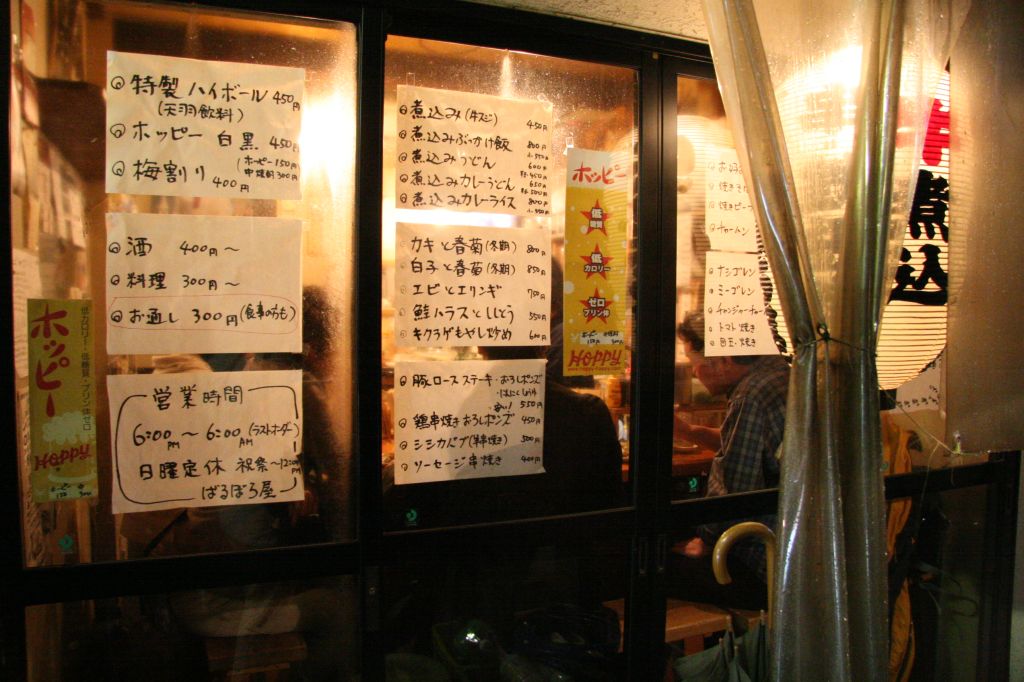 ◎ 特製 ハイボール 450円
(天羽飲料)
◎ ホッピー 白黒 450円
◎ 梅割り (ホッピー150円
400円
◎ 酒 400円〜
◎ 料理 300円〜
◎ お通し 300円(食事の方も)
営業時間
6:00PM 〜 6:00AM (ラストオーダー)
日曜定休 祝祭〜12:00PM
ばるぼろ屋
ホッピー
低カロリー・低糖質・プリン体ゼロ
Hoppy
◎ 煮込み(牛スジ) 450円
◎ 煮込みぶっかけ飯 800円
小 550円
◎ 煮込みうどん 600円
◎ 煮込みカレーうどん 650円
◎ 煮込みカレーライス 800円
小 550円
◎ カキと春菊(冬期) 800円
◎ 白子と春菊(冬期) 850円
◎ エビとエリンギ 750円
◎ 鮭ハラスとししとう 550円
◎ キクラゲもやし炒め 600円
◎ 豚ロースステーキ・おろしポンズ
・にんにくしょうゆ
550円
◎ 鶏串焼きおろしポンズ 450円
◎ シシカバブ(串焼き) 500円
◎ ソーセージ串焼き 400円
ホッピー
低糖質
低カロリー
ゼロプリン体
Hoppy
◎ ナシゴレン
◎ ミーゴレン
◎ トマト焼き
◎ 目玉焼き
煮込